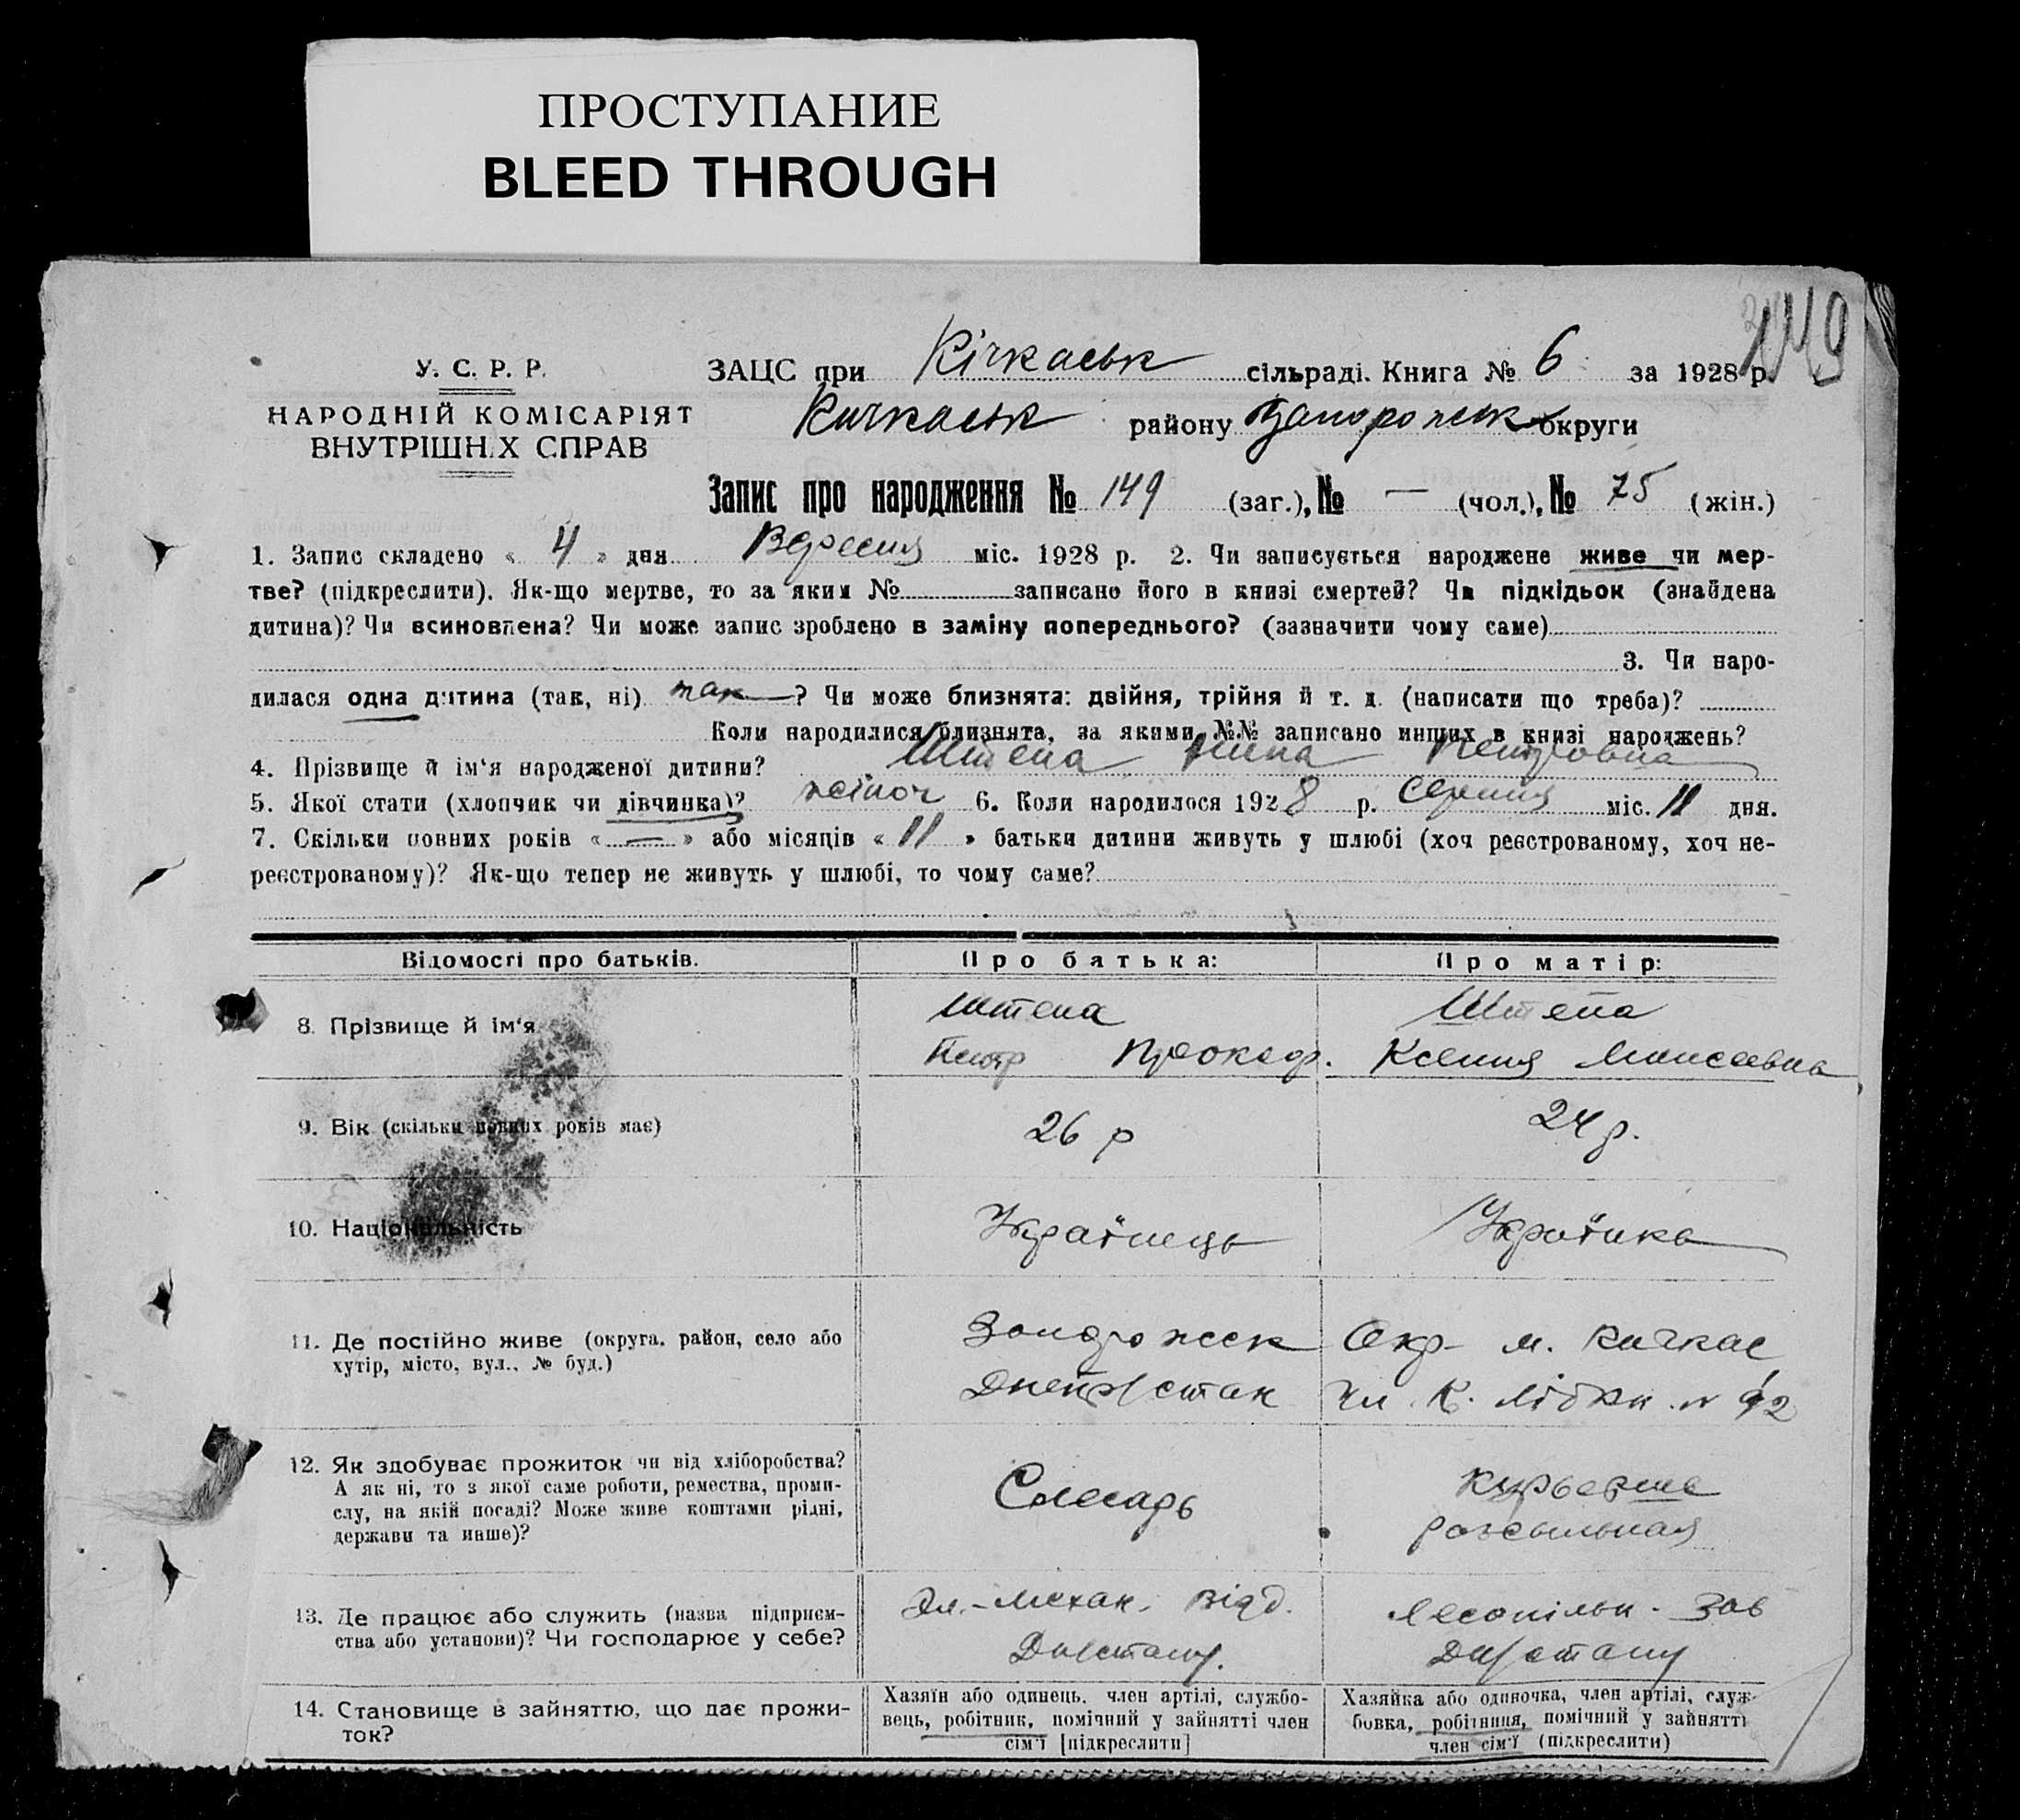 ПРОСТУПАНИЕ
BLEED THROUGH
149
У. С. Р. Р.
НАРОДНІЙ КОМІСАРІЯТ
ВНУТРІШНІХ СПРАВ
ЗАЦС при Кічкаськ сільраді. Книга № 6 за 1928 р.
Кичкаськ району Запорожськ округи
Запис про народження № 149 (заг.), № — (чол.), № 75 (жін.)
1. Запис складено « 4 » дня Вересня міс. 1928 р. 2. Чи записується народжене живе чи мер-
тве? (підкреслити). Як-що мертве, то за яким № записано його в книзі смертей? Чи підкідьок (знайдена
дитина)? Чи всиновлена? Чи може запис зроблено в заміну попереднього? (зазначити чому саме)
3. Чи наро-
дилася одна дитина (так, ні) так ? Чи може близнята: двійня, трійня й т. д. (написати що треба)?
Коли народилися близнята, за якими №№ записано инших в книзі народжень?
4. Прізвище й ім'я народженої дитини? Штепа Нина Петровна
5. Якої стати (хлопчик чи дівчинка)? жіноч 6. Коли народилося 1928 р. Серпня міс. 11 дня.
7. Скільки повних років « — » або місяців « 11 » батьки дитини живуть у шлюбі (хоч реєстрованому, хоч не-
реєстрованому)? Як-що тепер не живуть у шлюбі, то чому саме?
Відомості про батьків. Про батька: Про матір:
8. Прізвище й ім'я Штепа Штепа
Петр Прокоф. Ксения Моисеевна
9. Вік (скільки повних років має) 26 р 24 р.
10. Національність Українець Українка
11. Де постійно живе (округа, район, село або
хутір, місто, вул., № буд.)
Запорожськ Окр- м. Кичкас
Ул К. Лібкн. № 92
12. Як здобуває прожиток чи від хліборобства?
А як ні, то з якої саме роботи, ремества, проми-
слу, на якій посаді? Може живе коштами рідні,
держави та инше)?
Слесарь
курьерша
розсыльная
13. Де працює або служить (назва підприєм-
ства або установи)? Чи господарює у себе?
Эл.-Механ. Відд.
Лесопильн. Зав
14. Становище в зайняттю, що дає прожи-
ток?
Хазяїн або одинець, член артілі, службо-
вець, робітник, помічний у зайнятті член
сім'ї [підкреслити]
Хазяйка або одиночка, член артілі, служ-
бовка, робітниця, помічний у зайнятті
член сім'ї (підкреслити)